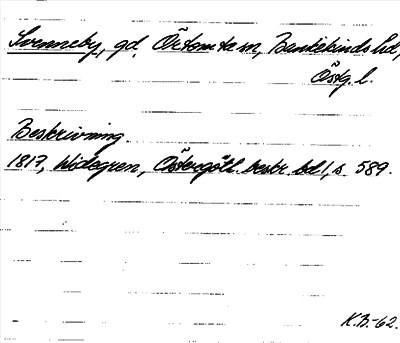 Svenneby, gd, Örtomta sn, Bankekinds hd,
Östg. l.
Beskrivning
1817, Widegren, Östergötl. beskr. bd 1, s. 589.
K.B.-62.